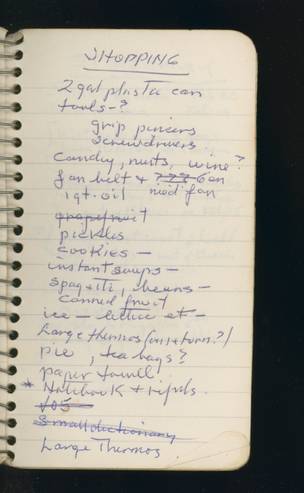 SHOPPING
2 gal plastic can
tools - ?
grip pincers
screwdrivers
candy, nuts, wine?
fan belt &
1 qt. oil
grapefruit
pickles
cookies —
instant soups —
spagetti, beans —
canned fruit
ice — lettuce et —
Large thermos (in return?)
pie, tea bags?
paper towell
* Notebook +
small dictionary
Large Thermos